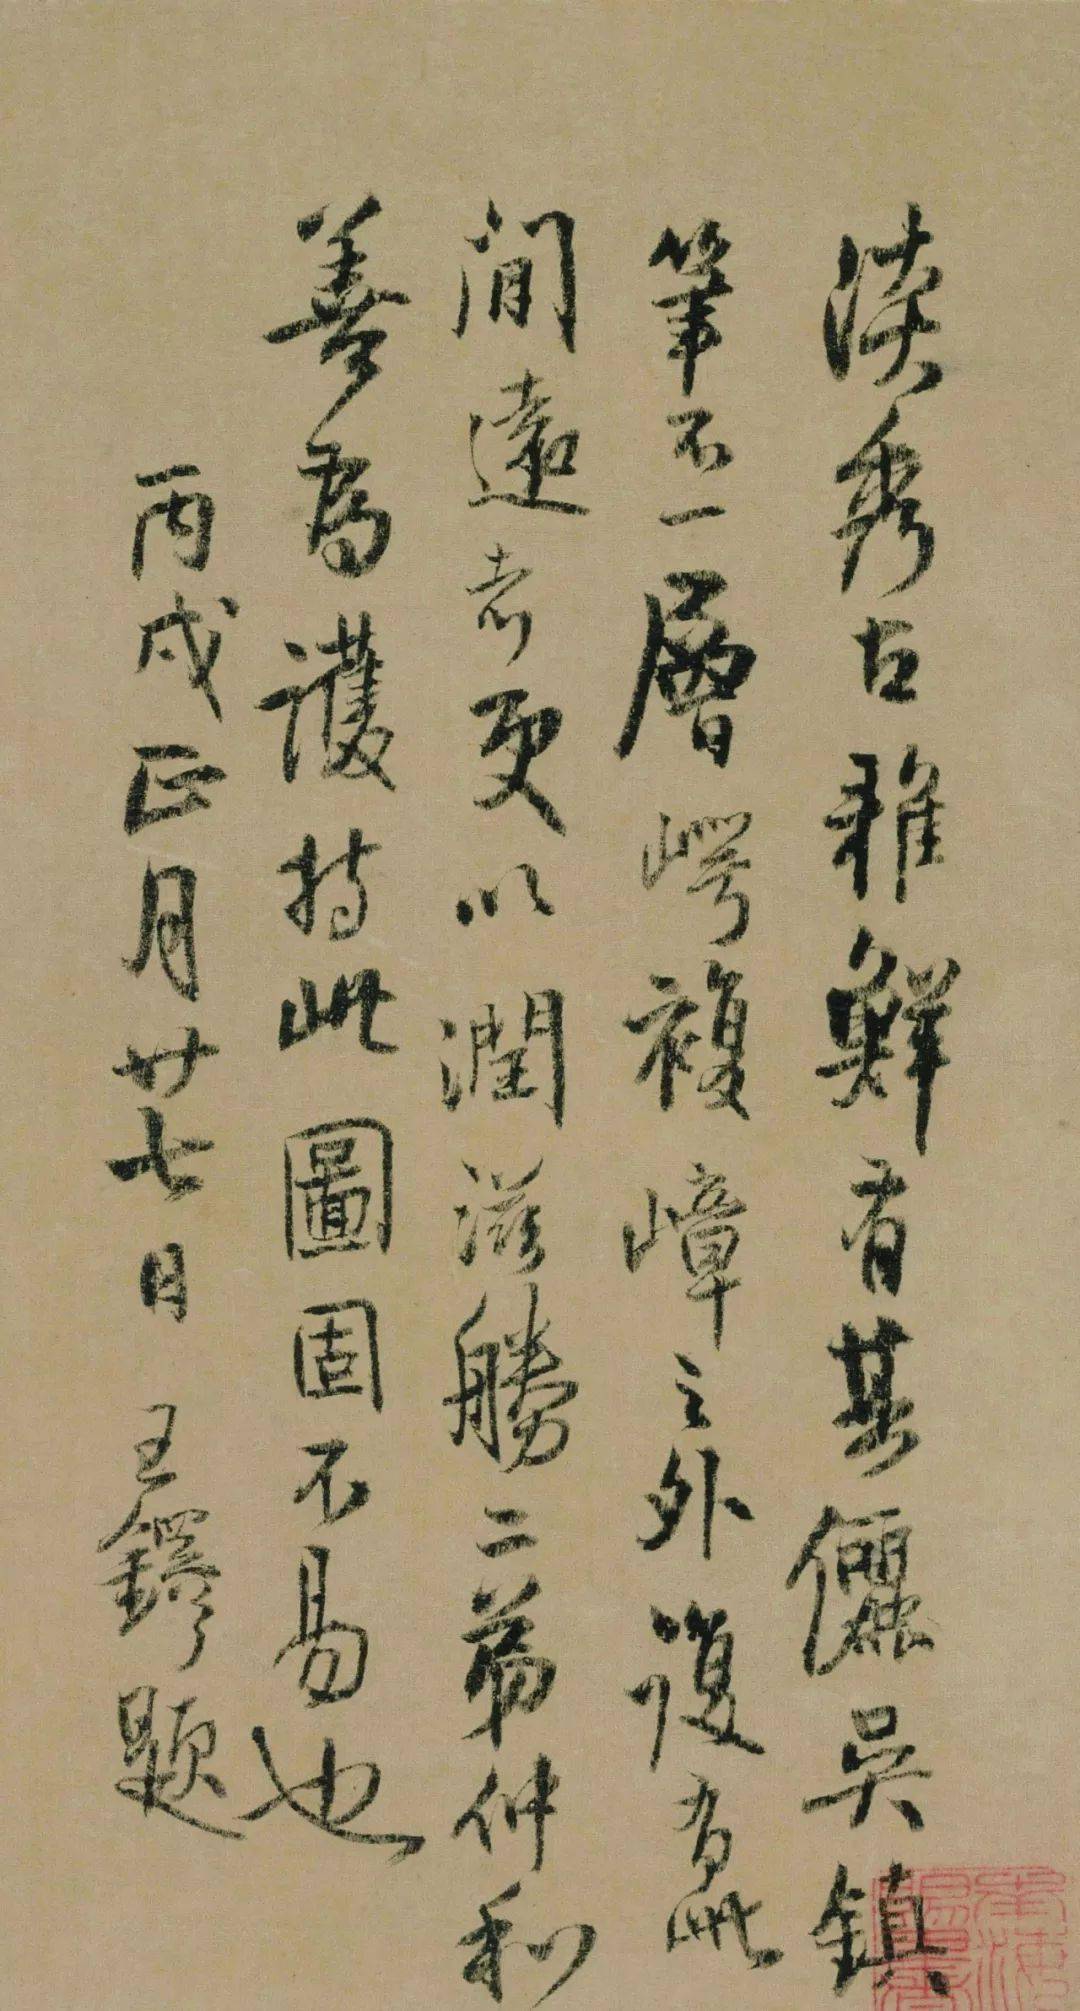 淡秀古雅鮮有其儷吳鎮
筆不一層崿複嶂之外復有此
閒遠者更以潤滋勝二弟仲和
善為護持此圖固不易也
丙戌正月廿七日王鐸題